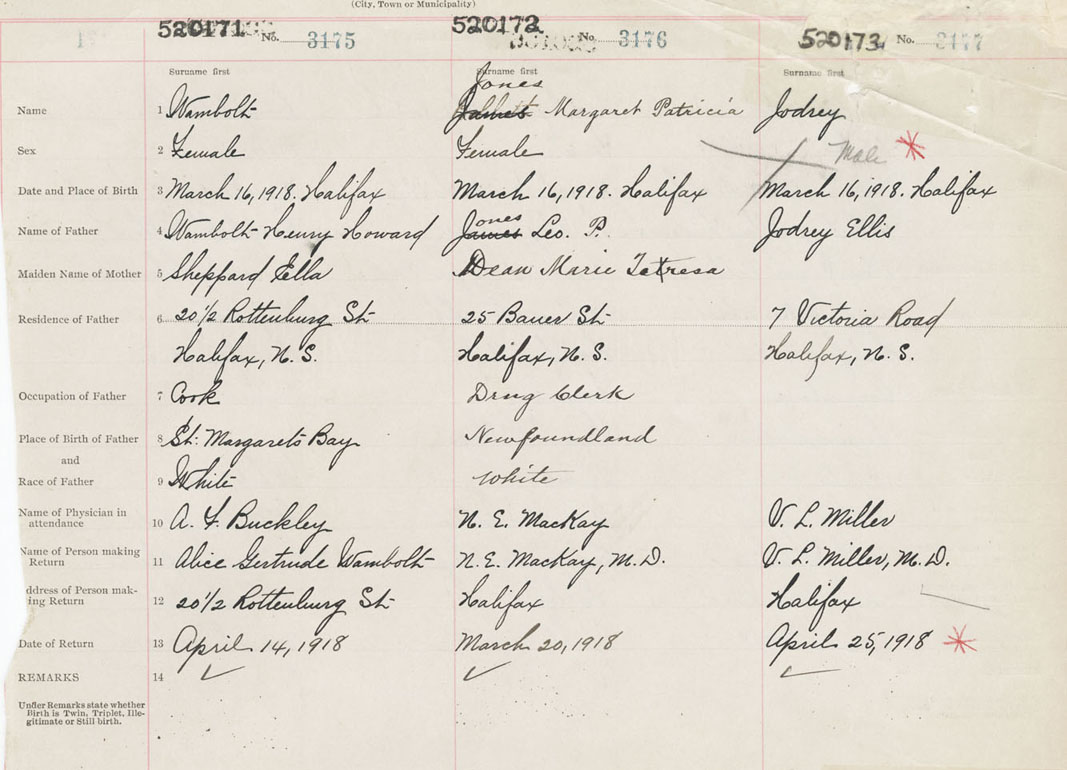 (City, Town or Municipality)
520171 No. 3175 520172 No. 3176 520173 No. 3177
Surname first Surname first Surname first
Jones
Name 1 Wambolt James Margaret Patricia Jodrey
Sex 2 Female Female Male *
Date and Place of Birth 3 March 16, 1918. Halifax March 16, 1918. Halifax March 16, 1918. Halifax
Jones
Name of Father 4 Wambolt Henry Howard James Leo. P. Jodrey Ellis
Maiden Name of Mother 5 Sheppard Ella Dean Marie
Residence of Father 6 20 1/2 Rottenburg St 25 Bauer St 7 Victoria Road
Halifax, N. S. Halifax, N. S. Halifax, N. S.
Occupation of Father 7 Cook Drug Clerk
Place of Birth of Father 8 St. Margarets Bay Newfoundland
and
Race of Father 9 White White
Name of Physician in
attendance 10 A. F. Buckley N. E. MacKay V. L. Miller
Name of Person making
Return 11 Alice Gertrude Wambolt N. E. MacKay, M.D. V. L. Miller, M.D.
ddress of Person mak-
ing Return 12 20 1/2 Rottenburg St Halifax Halifax
Date of Return 13 April 14, 1918 March 20, 1918 April 25, 1918 *
REMARKS 14 ✓ ✓ ✓
Under Remarks state whether
Birth is Twin, Triplet, Ille-
gitimate or Still birth.